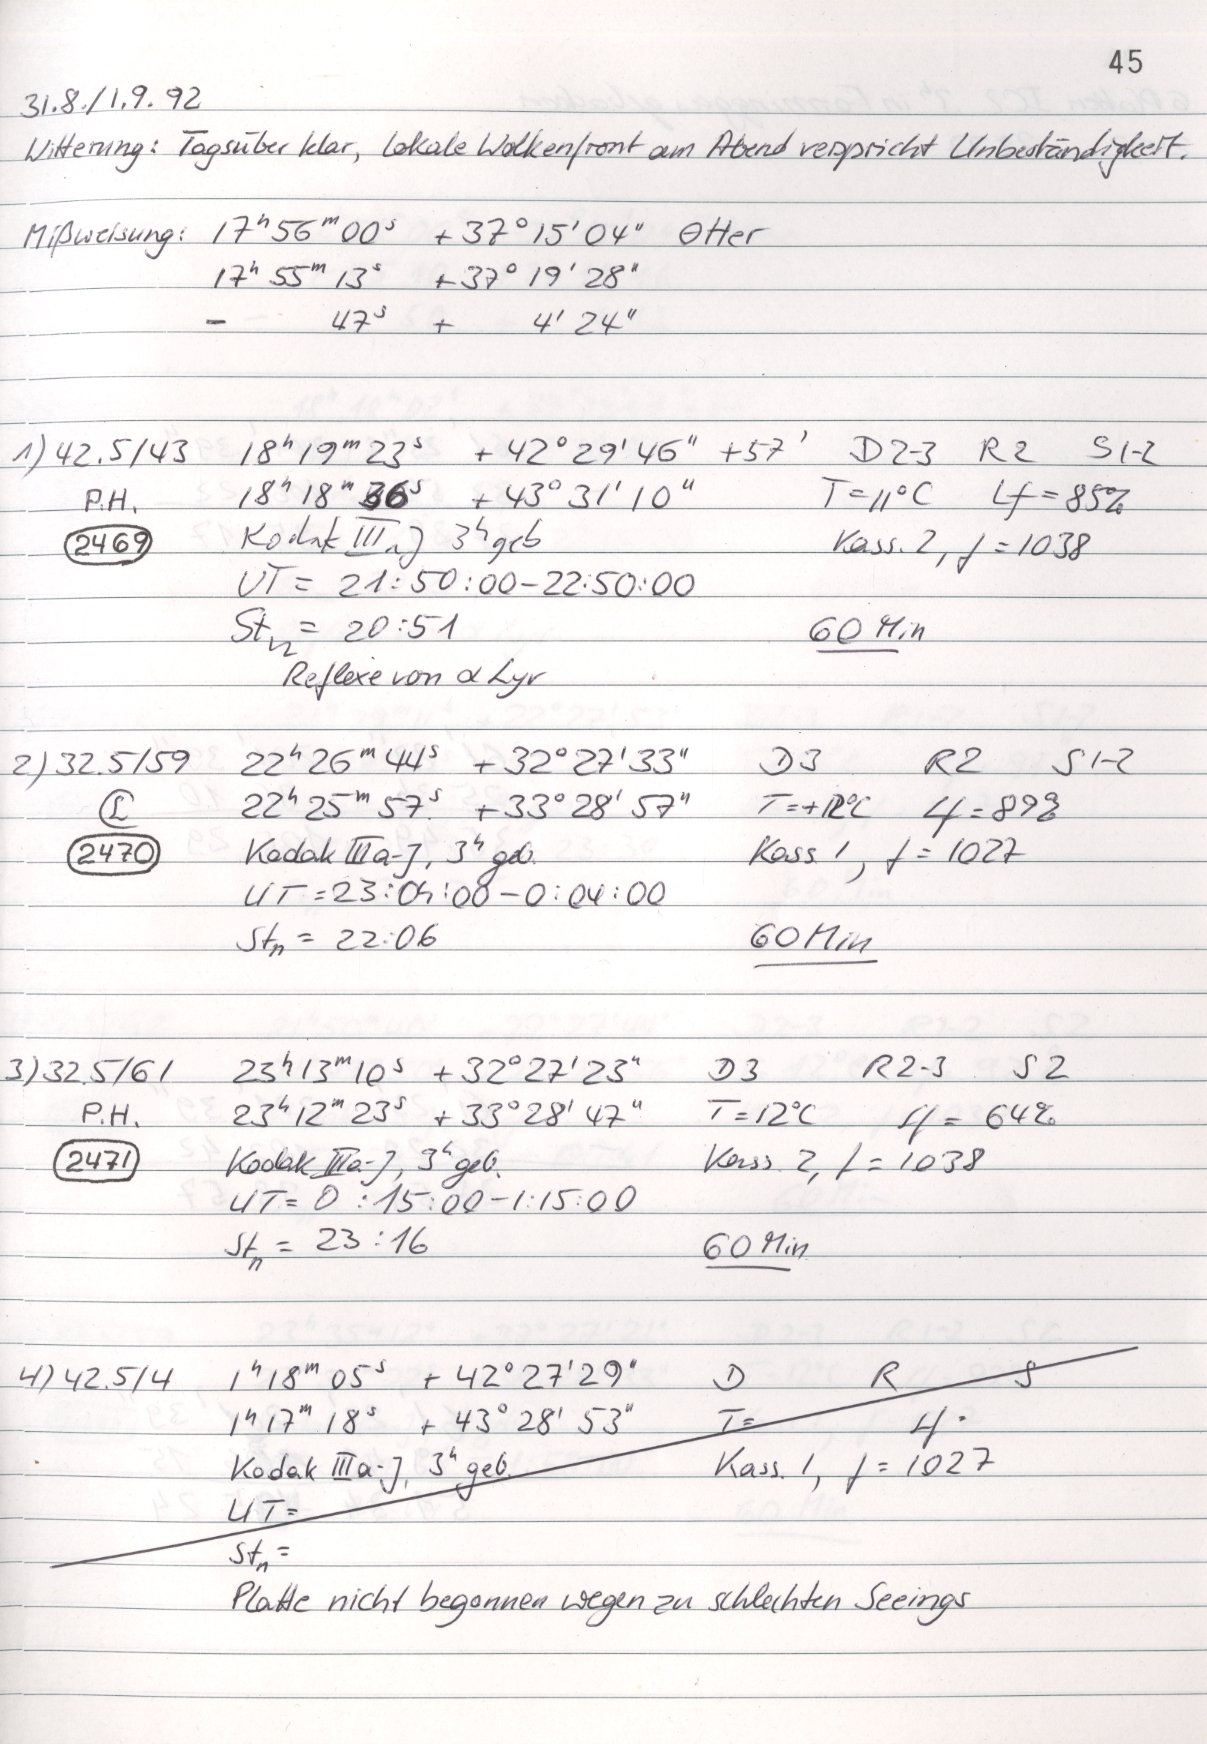 45
31.8./1.9.92
Witterung: Tagsüber klar, lokale Wolkenfront am Abend verspricht Unbeständigkeit.
Mißweisung: 17ʰ56ᵐ00ˢ +37°15'04" θHer
17ʰ55ᵐ13ˢ +37°19'28"
- 47ˢ + 4'24"
1) 42.5/43 18ʰ19ᵐ23ˢ +42°29'46" +57' D2-3 R2 S1-2
P.H. 18ʰ18ᵐ36ˢ +43°31'10" T=11°C Lf=85%
2469 Kodak IIIaJ 3ʰgeb Kass. 2, f=1038
UT= 21:50:00-22:50:00
Stₙ= 20:51 60 Min
Reflexe von α Lyr
2) 32.5/59 22ʰ26ᵐ44ˢ +32°27'33" D3 R2 S1-2
22ʰ25ᵐ57ˢ +33°28'57" T=+12°C Lf=89%
2470 Kodak IIIa-J, 3ʰgeb. Kass 1, f=1027
UT=23:04:00-0:04:00
Stₙ= 22:06 60 Min
3) 32.5/61 23ʰ13ᵐ10ˢ +32°27'23" D3 R2-3 S2
P.H. 23ʰ12ᵐ23ˢ +33°28'47" T=12°C Lf= 64%
2471 Kodak IIIa-J, 3ʰgeb. Kass 2, f=1038
UT= 0:15:00-1:15:00
Stₙ= 23:16 60 Min
4) 42.5/4 1ʰ18ᵐ05ˢ +42°27'29" D R S
1ʰ17ᵐ18ˢ +43°28'53" T= Lf=
Kodak IIIa-J, 3ʰgeb. Kass. 1, f=1027
UT=
Stₙ=
Platte nicht begonnen wegen zu schlechten Seeings